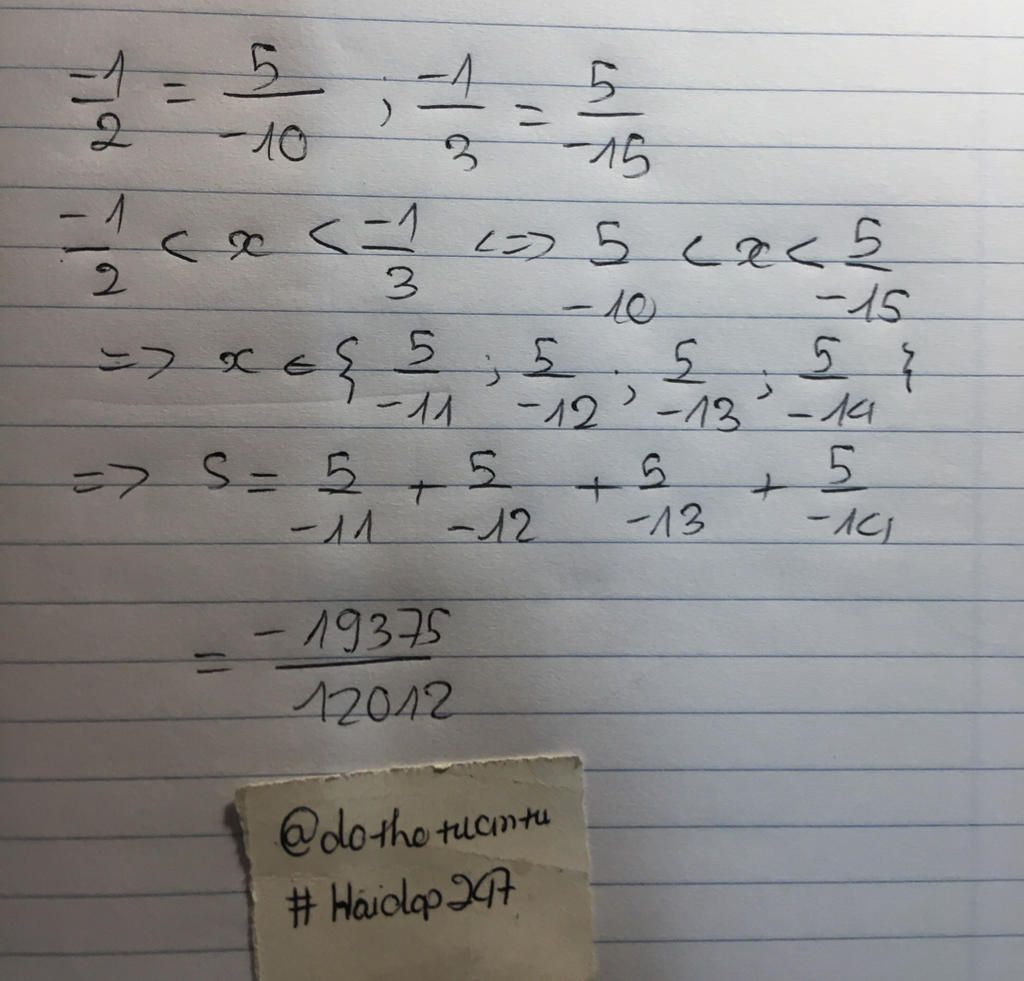 -1/2 = 5/-10 ; -1/3 = 5/-15
-1/2 < x < -1/3 <=> 5/-10 < x < 5/-15
=> x ∈ { 5/-11 ; 5/-12 ; 5/-13 ; 5/-14 }
=> S = 5/-11 + 5/-12 + 5/-13 + 5/-14
= -19375/12012
@dothetuantu
# Hoidap247